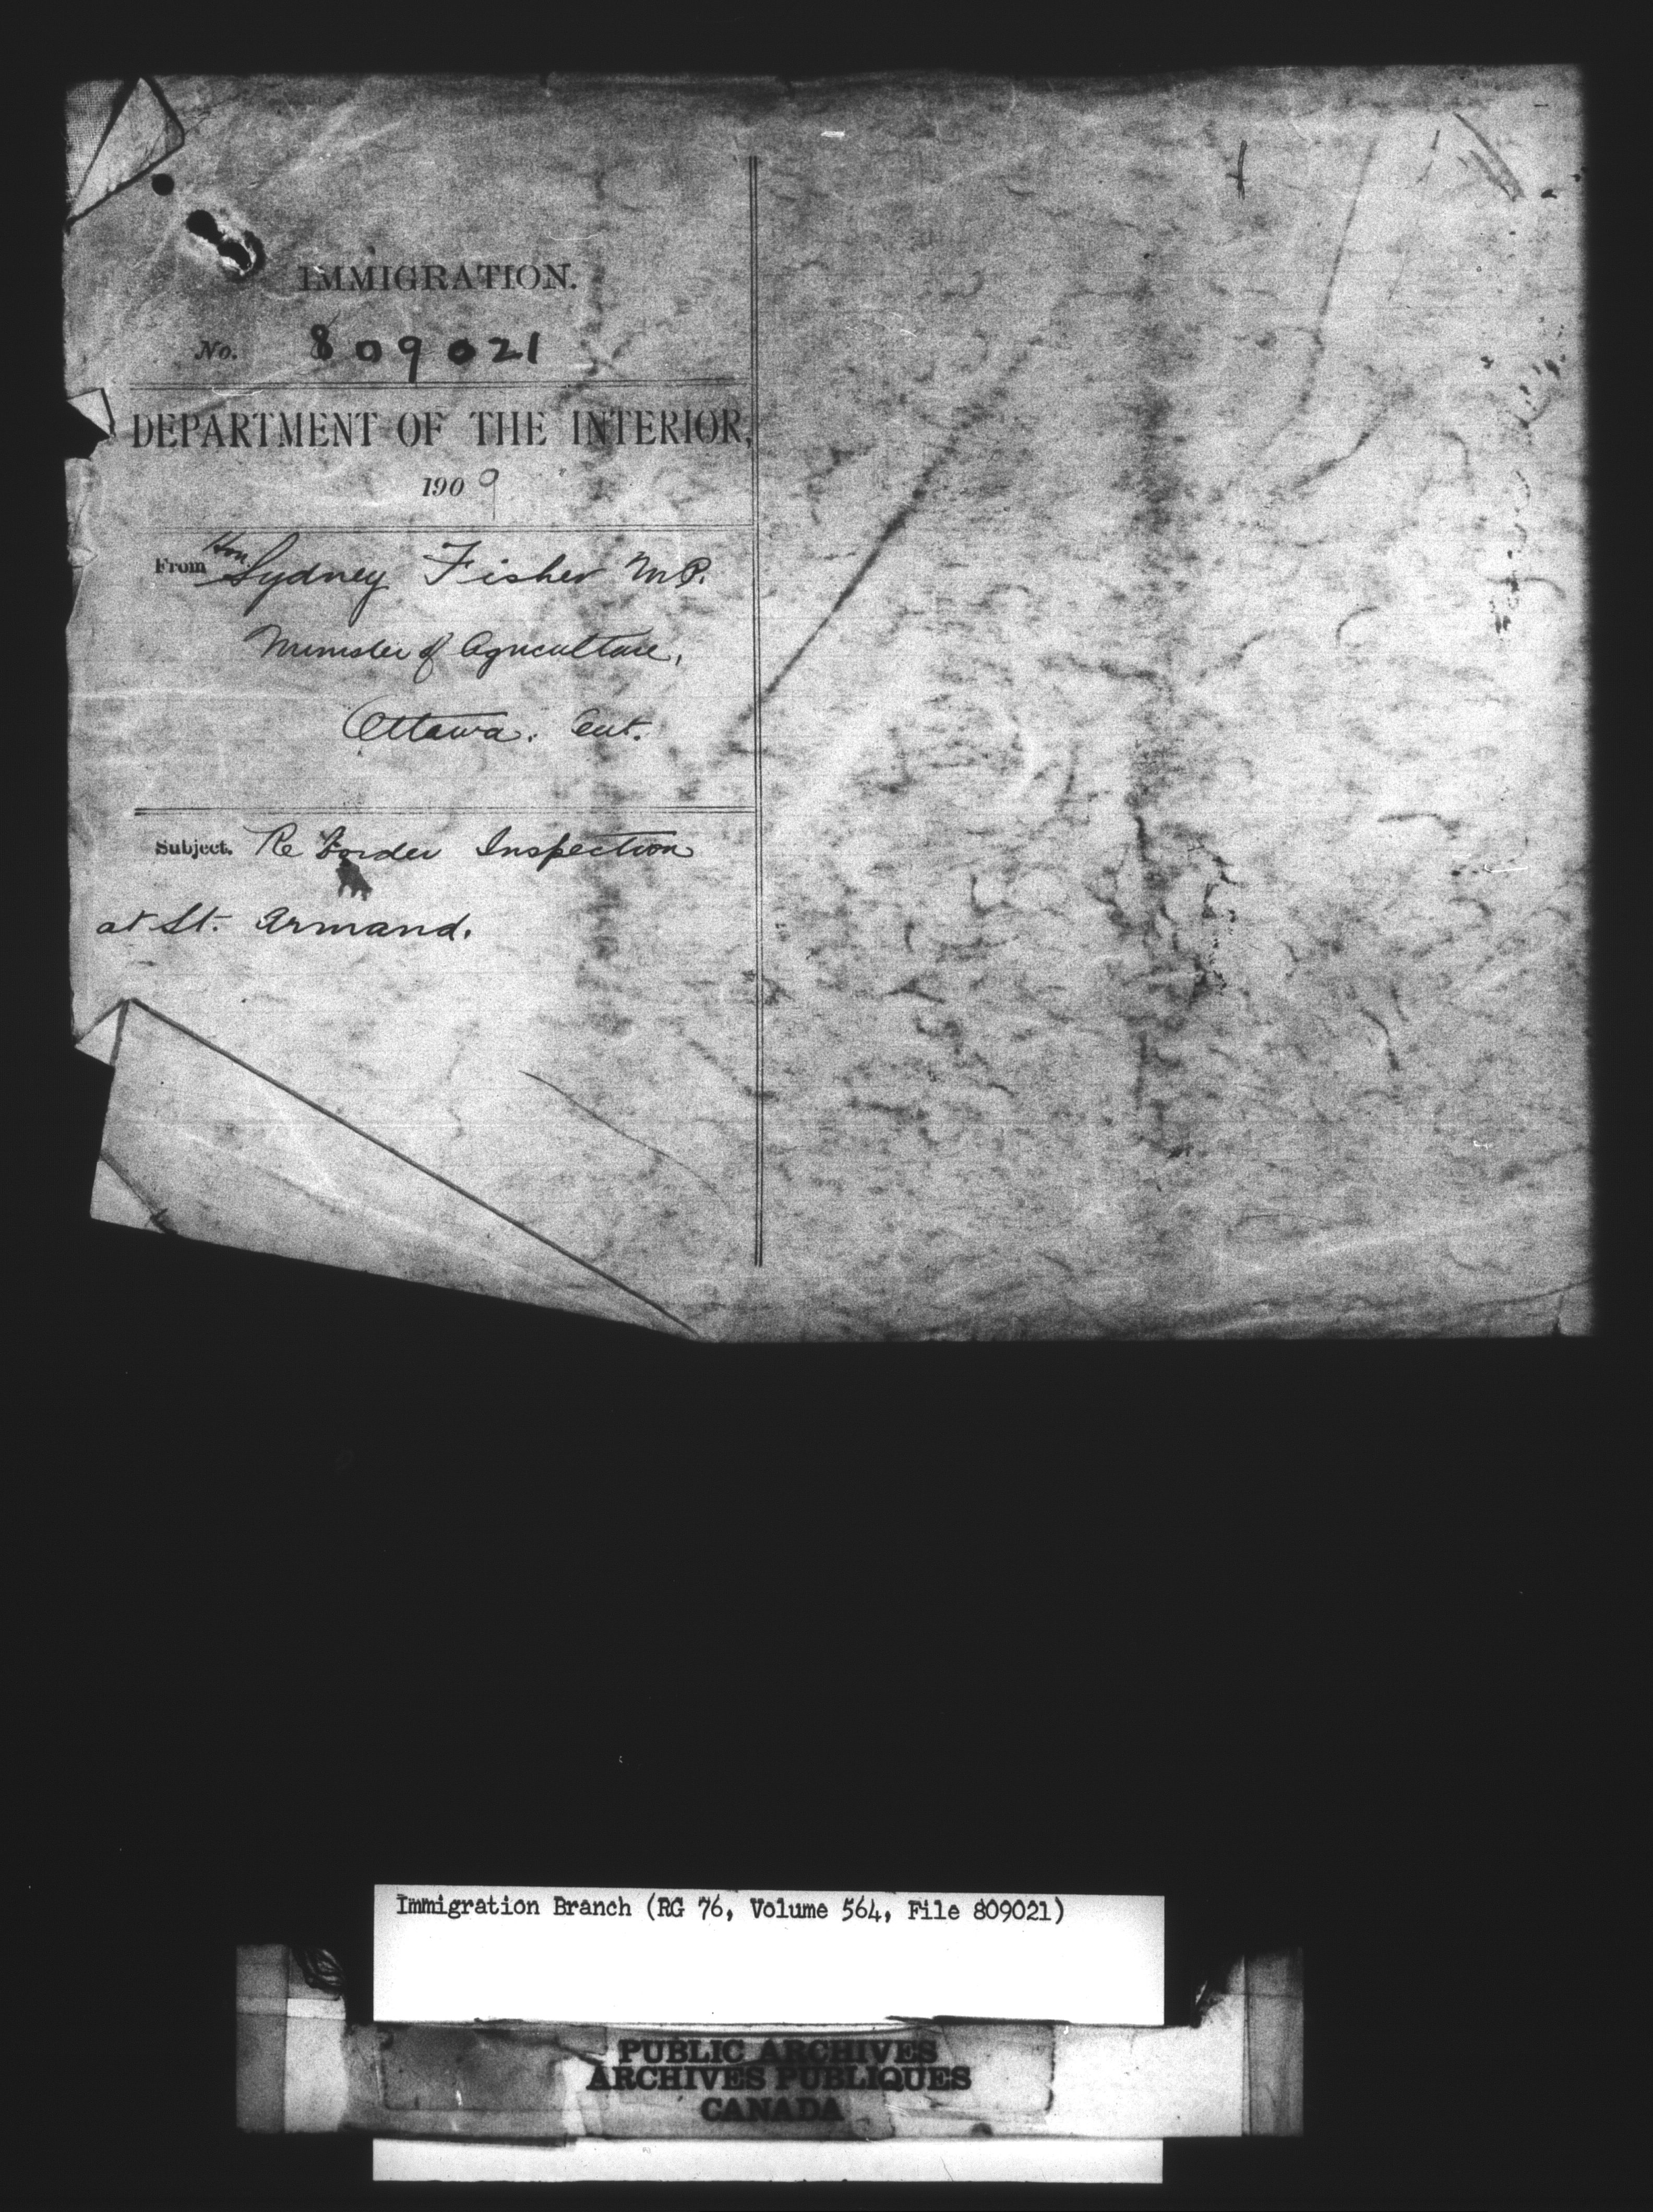 IMMIGRATION.
No. 809021
DEPARTMENT OF THE INTERIOR,
1909
From Hon. Sydney Fisher M.P.
Minister of Agriculture,
Ottawa. Ont.
Subject. Re Border Inspection
at St. Armand.
Immigration Branch (RG 76, Volume 564, File 809021)
PUBLIC ARCHIVES
ARCHIVES PUBLIQUES
CANADA